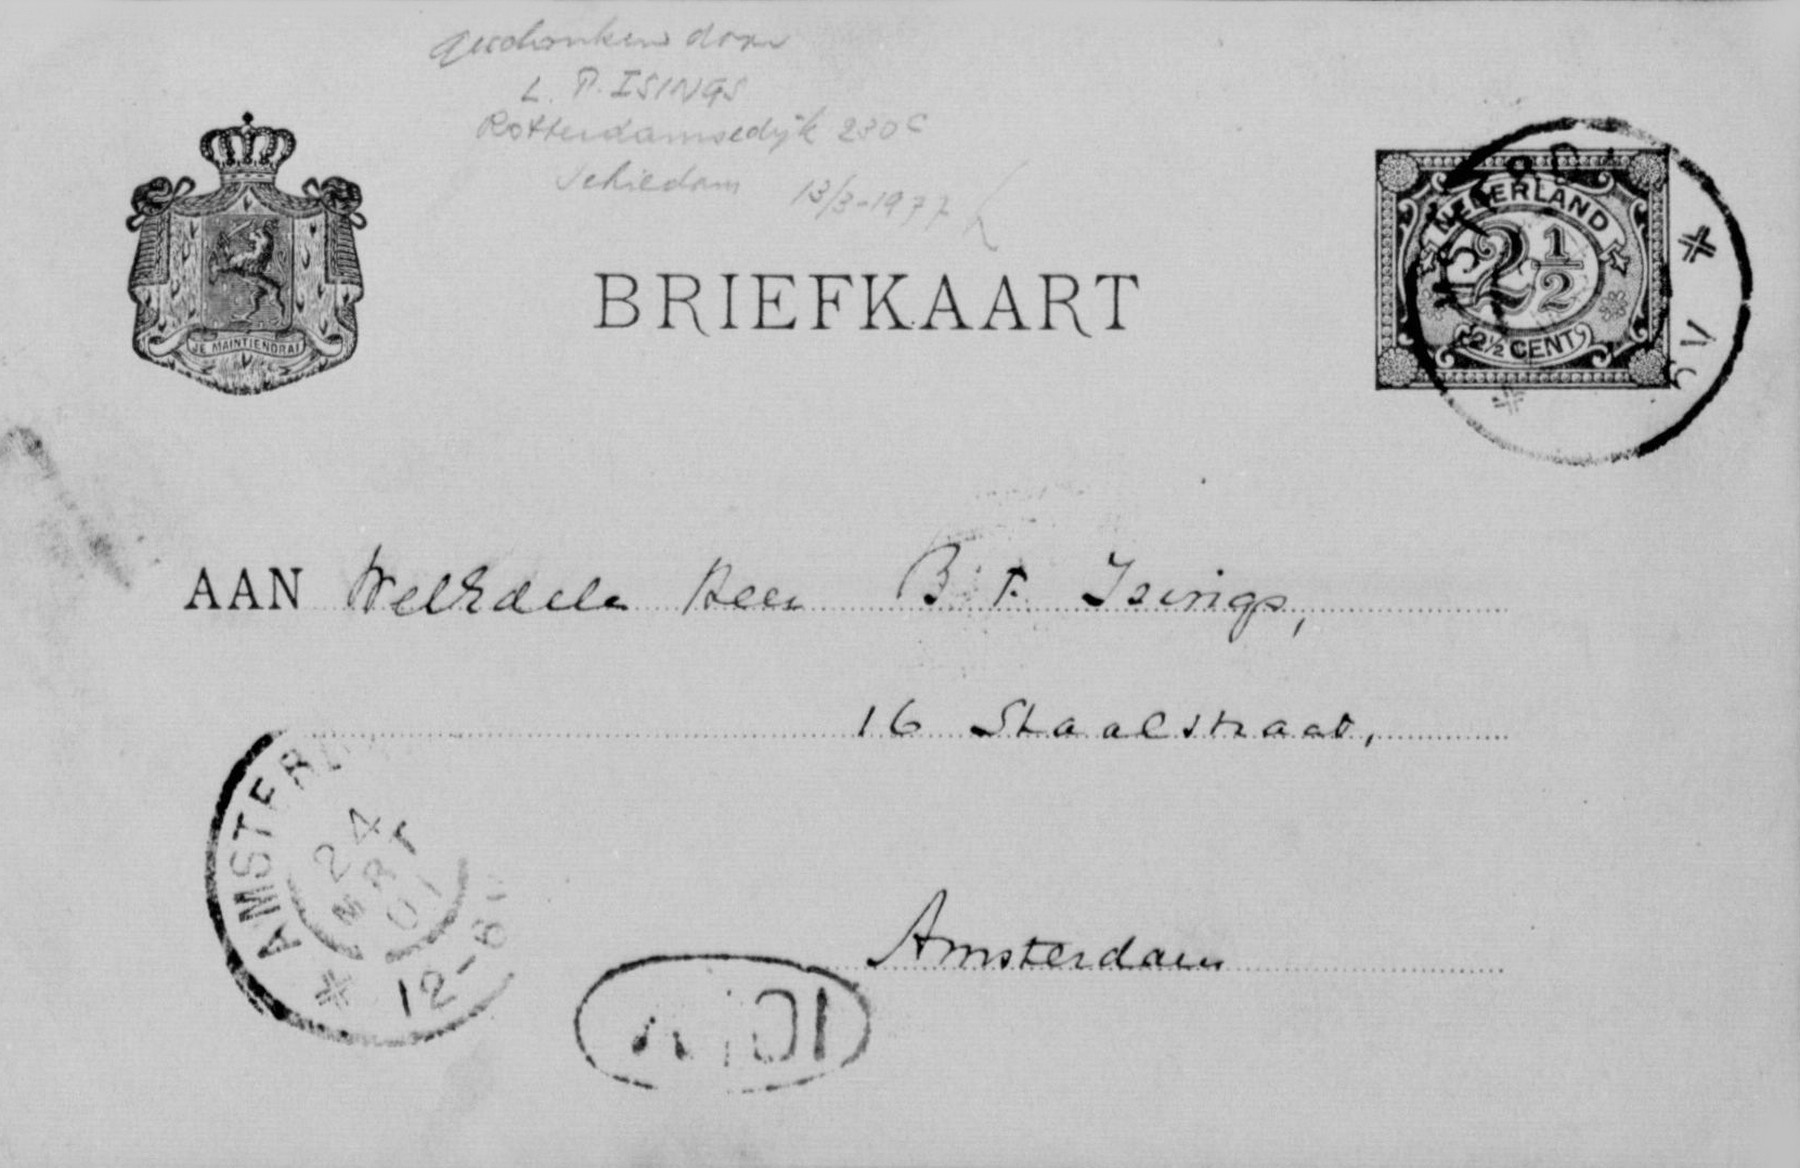 geschonken door
L. P. ISINGS
Rotterdamsedijk 230c
Schiedam 13/3-1977
JE MAINTIENDRAI
BRIEFKAART
NEDERLAND
2 1/2
2½ CENT
AAN WelEdele Heer B F Isings,
16 Staalstraat,
AMSTERD
24
MRT
01
12-6
Amsterdam